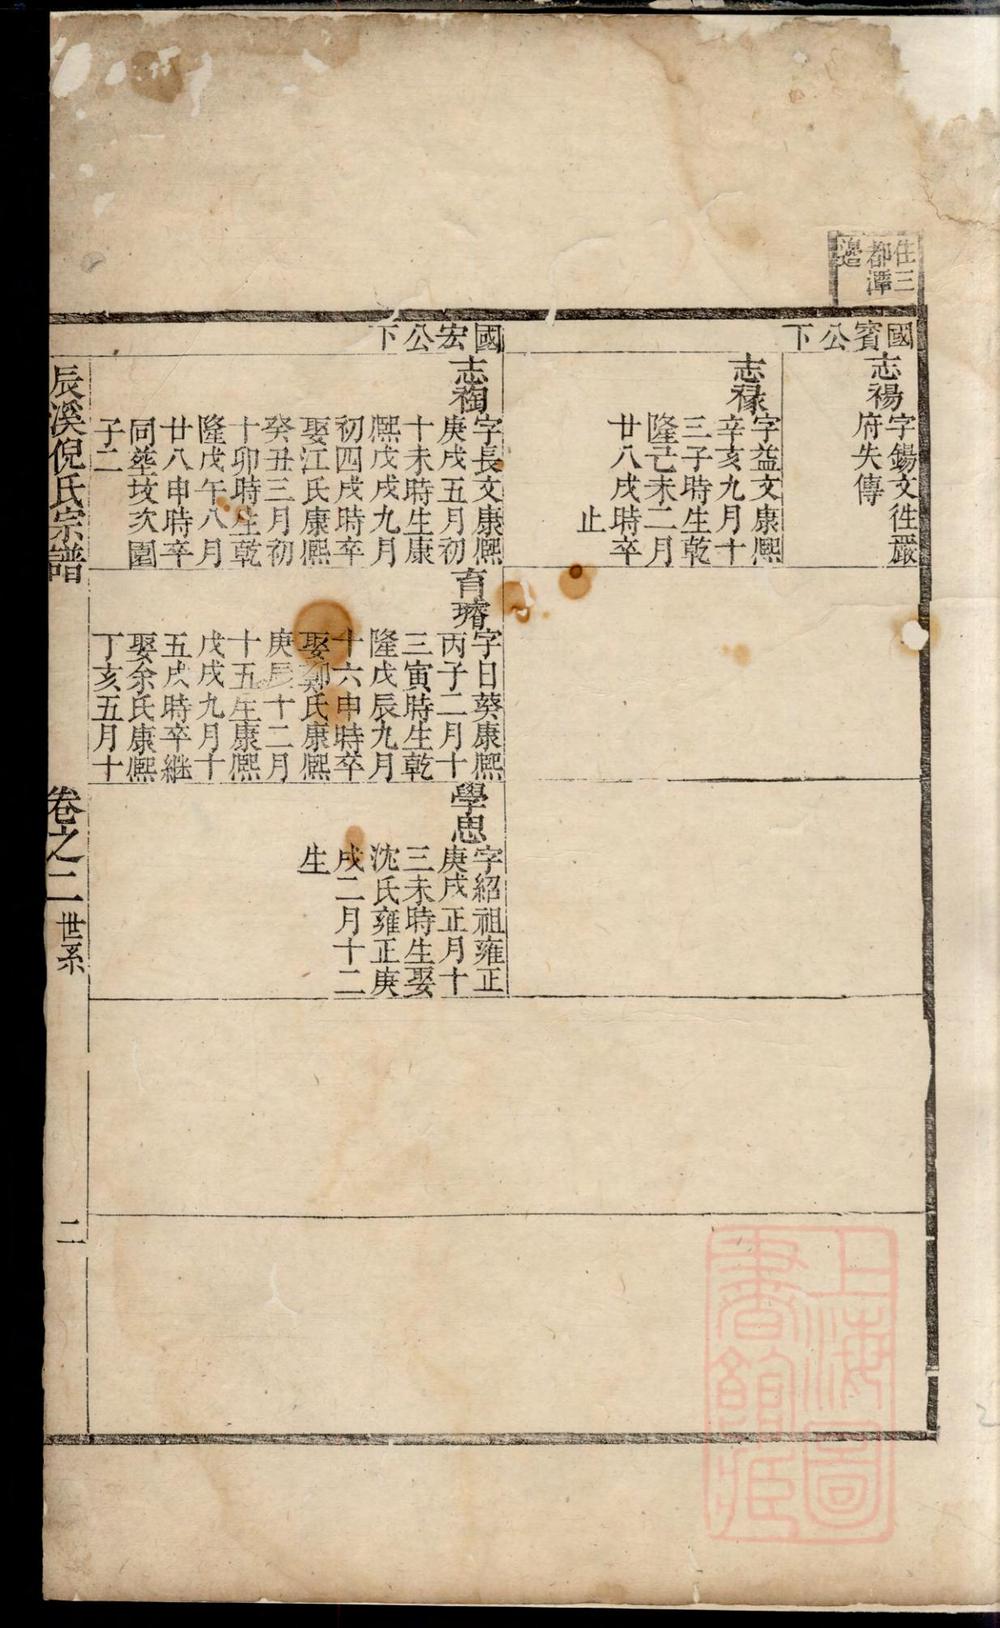 住三
都潭
邊
國賓公下
志禓
字鍚文徃嚴
府失傳
志祿
字益文康熙
辛亥九月十
三子時生乾
隆己未二月
廿八戌時卒
止
國宏公下
志裪
字長文康熙
庚戌五月初
十未時生康
熙戊戌九月
初四戌時卒
娶江氏康熙
癸丑三月初
十卯時生乾
隆戊午八月
廿八申時卒
同塟坟次圍
子二
育璿
字日葵康熙
丙子二月十
三寅時生乾
隆戊辰九月
十六申時卒
娶鄭氏康熙
庚辰十二月
十五生康熙
戊戌九月十
五戌時卒継
娶余氏康熙
丁亥五月十
學思
字紹祖雍正
庚戌正月十
三未時生娶
沈氏雍正庚
戌二月十二
生
辰溪倪氏宗譜
卷之二 世系
二
上海圖
書館藏